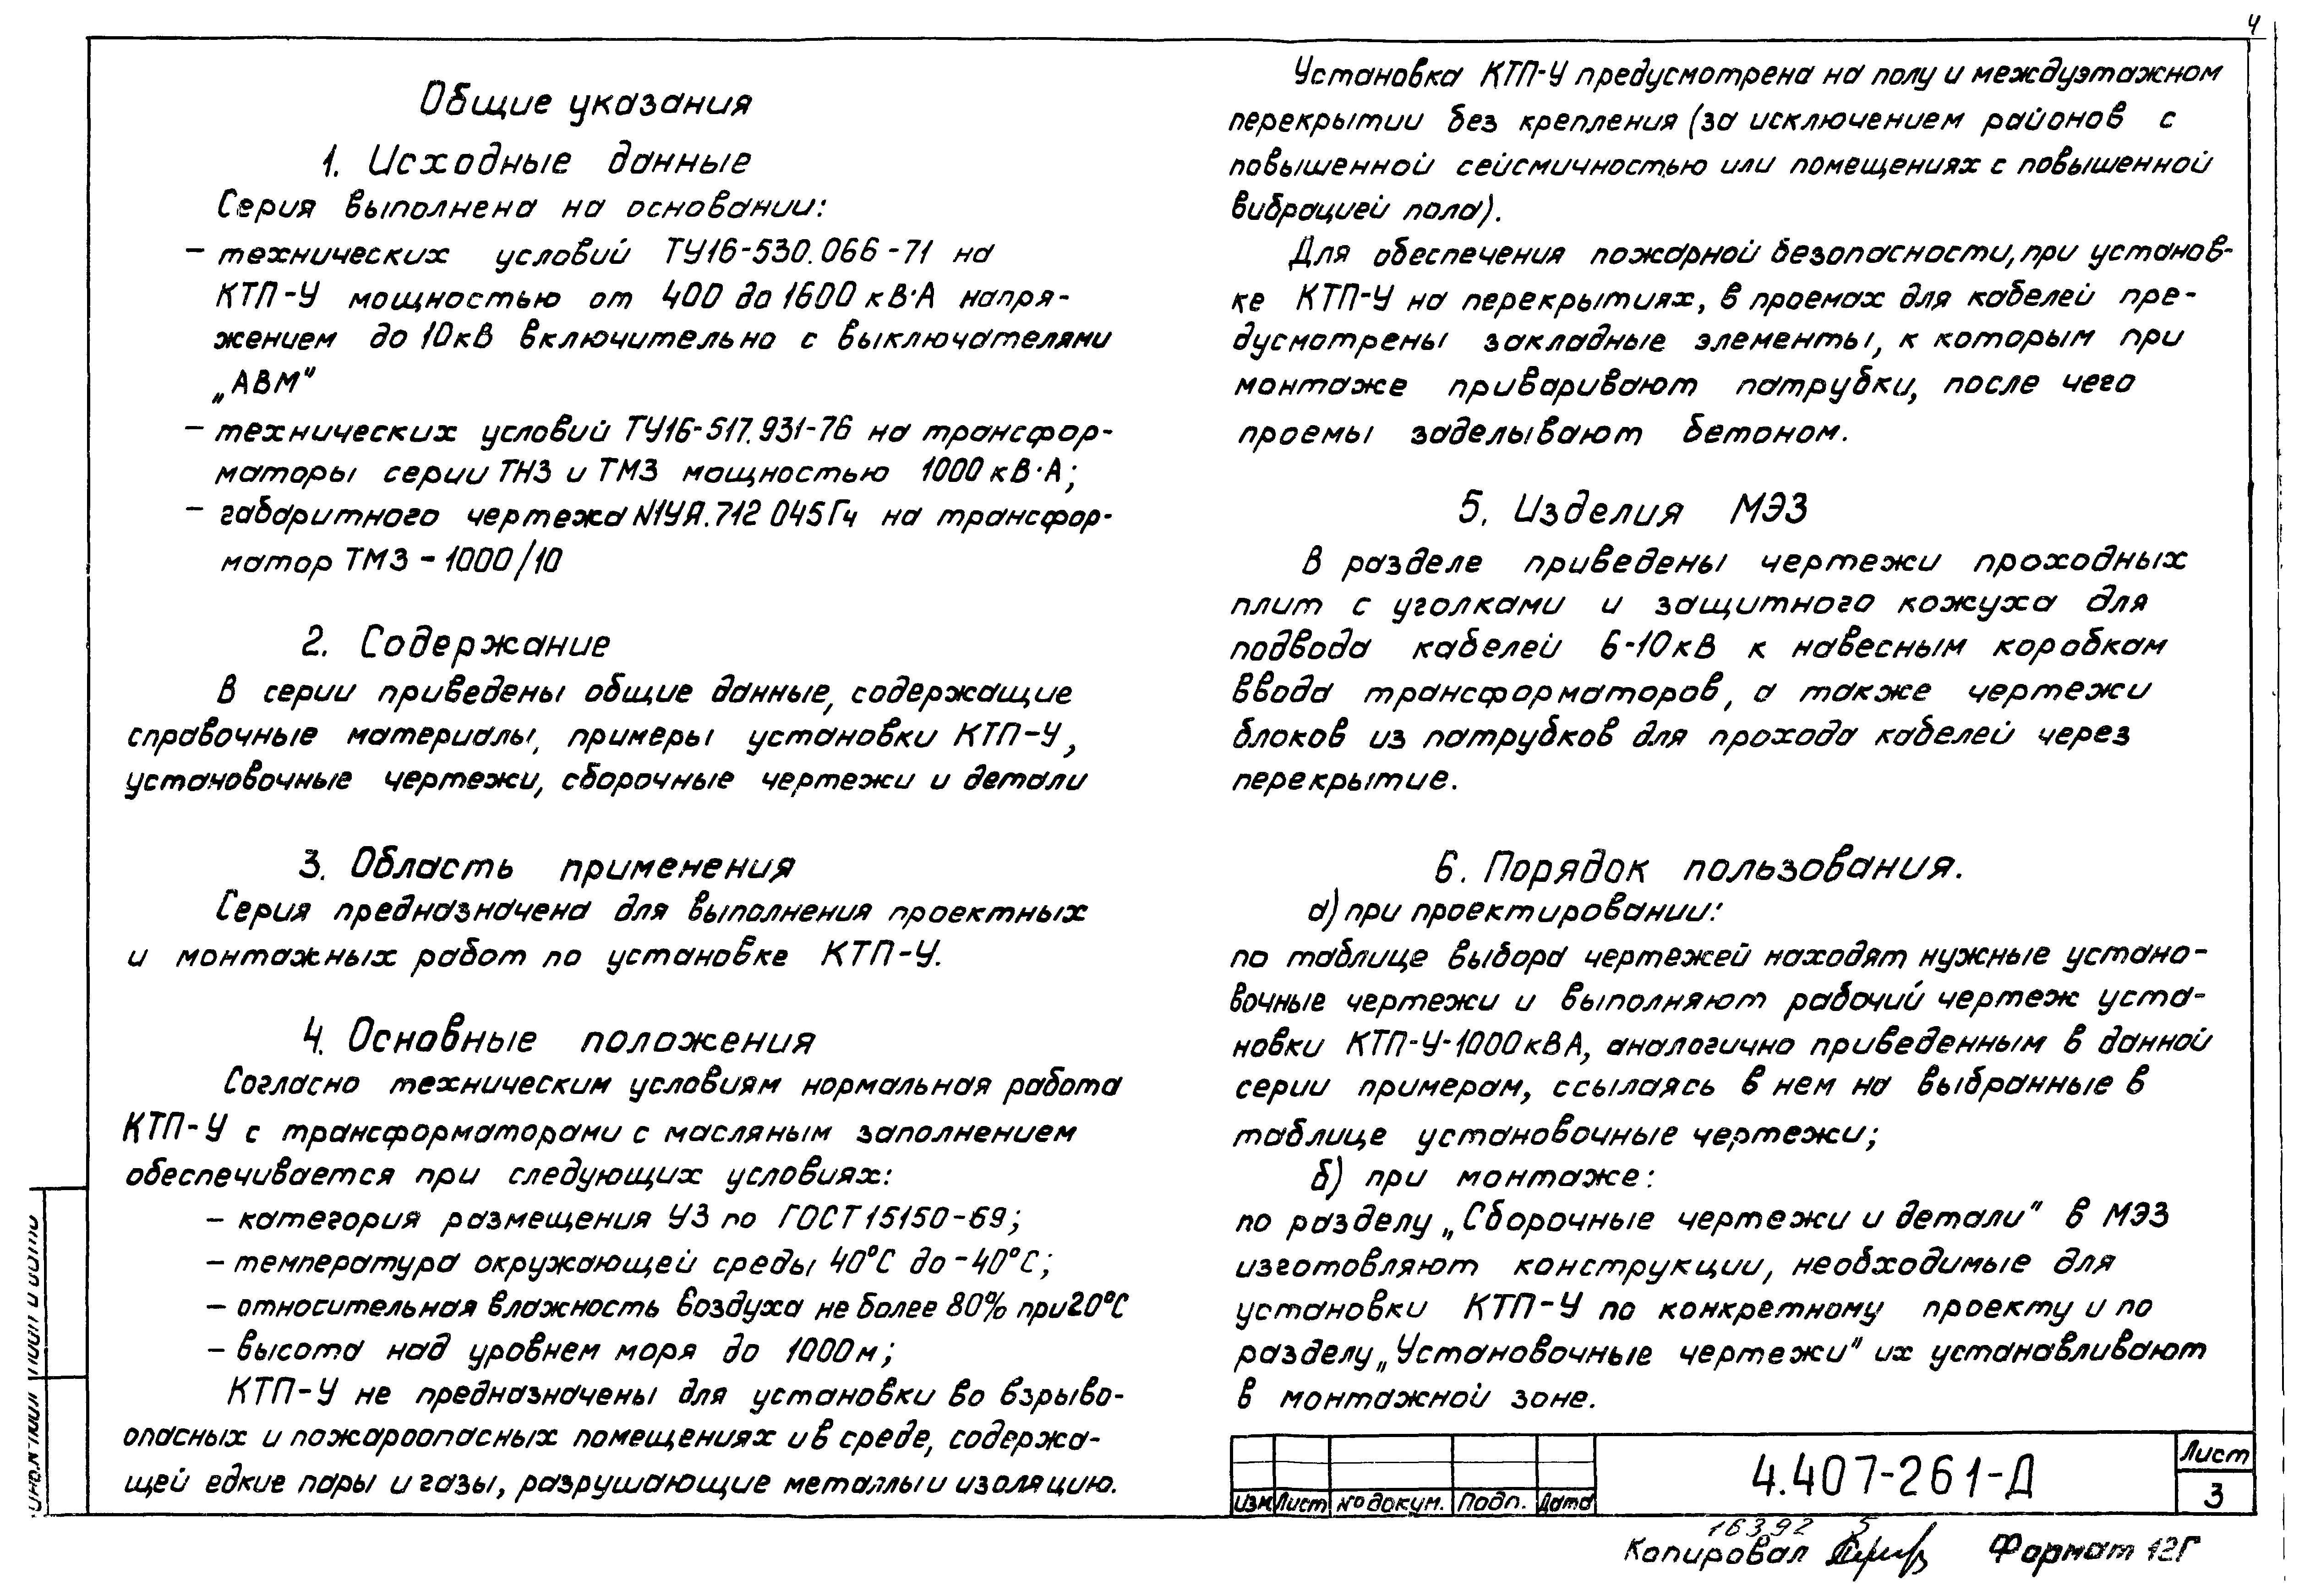 4
Общие указания
1. Исходные данные
Серия выполнена на основании:
– технических условий ТУ16-530.066-71 на
КТП-У мощностью от 400 до 1600 кВ·А напря-
жением до 10кВ включительно с выключателями
„АВМ"
– технических условий ТУ16-517.931-76 на трансфор-
маторы серии ТНЗ и ТМЗ мощностью 1000 кВ·А;
– габаритного чертежа N1УЯ.712 045Гч на трансфор-
матор ТМЗ – 1000/10
2. Содержание
В серии приведены общие данные, содержащие
справочные материалы, примеры установки КТП-У,
установочные чертежи, сборочные чертежи и детали
3. Область применения
Серия предназначена для выполнения проектных
и монтажных работ по установке КТП-У.
4. Основные положения
Согласно техническим условиям нормальная работа
КТП-У с трансформаторами с масляным заполнением
обеспечивается при следующих условиях:
– категория размещения У3 по ГОСТ 15150-69;
– температура окружающей среды 40°С до -40°С;
– относительная влажность воздуха не более 80% при 20°С
– высота над уровнем моря до 1000м;
КТП-У не предназначены для установки во взрыво-
опасных и пожароопасных помещениях и в среде, содержа-
щей едкие пары и газы, разрушающие металлы и изоляцию.
Установка КТП-У предусмотрена на полу и междуэтажном
перекрытии без крепления (за исключением районов с
повышенной сейсмичностью или помещениях с повышенной
вибрацией пола).
Для обеспечения пожарной безопасности, при установ-
ке КТП-У на перекрытиях, в проемах для кабелей пре-
дусмотрены закладные элементы, к которым при
монтаже приваривают патрубки, после чего
проемы заделывают бетоном.
5. Изделия МЭЗ
В разделе приведены чертежи проходных
плит с уголками и защитного кожуха для
подвода кабелей 6-10кВ к навесным коробкам
ввода трансформаторов, а также чертежи
блоков из патрубков для прохода кабелей через
перекрытие.
6. Порядок пользования.
а) при проектировании:
по таблице выбора чертежей находят нужные устано-
вочные чертежи и выполняют рабочий чертеж уста-
новки КТП-У-1000кВА, аналогично приведенным в данной
серии примерам, ссылаясь в нем на выбранные в
таблице установочные чертежи;
б) при монтаже:
по разделу „Сборочные чертежи и детали" в МЭЗ
изготовляют конструкции, необходимые для
установки КТП-У по конкретному проекту и по
разделу „Установочные чертежи" их устанавливают
в монтажной зоне.
Изм Лист № докум. Подп. Дата
4.407-261-Д
Лист
3
16392 5
Копировал Формат 12Г